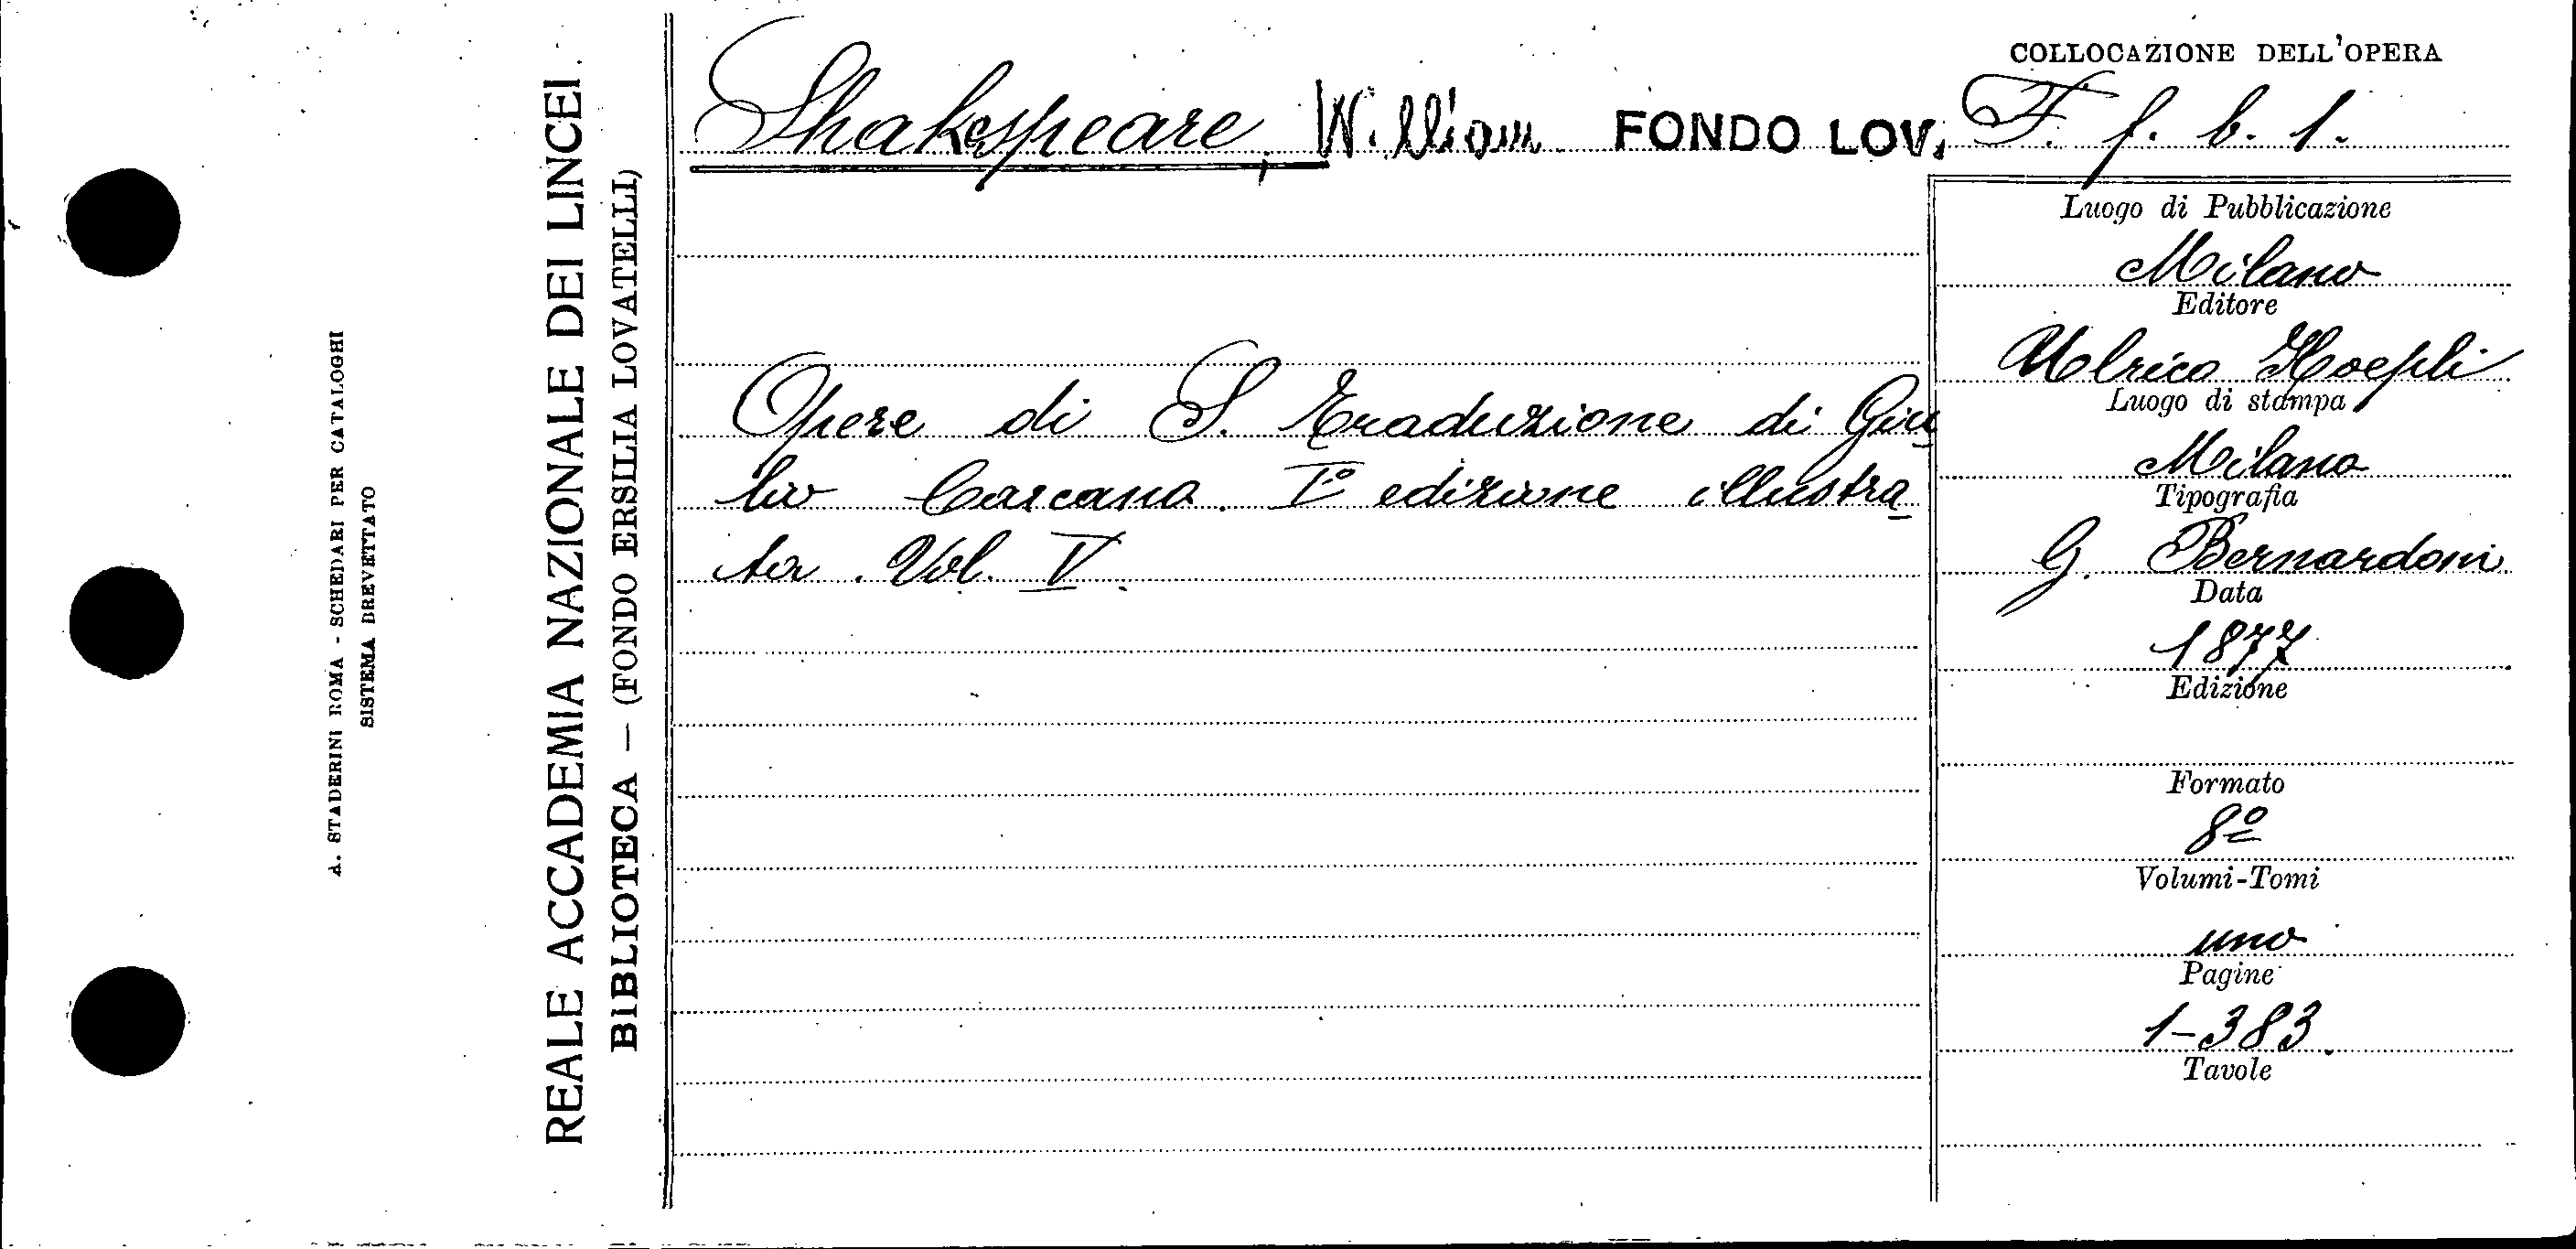 A. STADERINI ROMA - SCHEDARI PER CATALOGHI
SISTEMA BREVETTATO
REALE ACCADEMIA NAZIONALE DEI LINCEI
BIBLIOTECA — (FONDO ERSILIA LOVATELLI)
Shakespeare, William FONDO LOV.
Opere di S. Traduzione di Giu
lio Carcano. I° edizione illustra
ta. Vol. V.
COLLOCAZIONE DELL'OPERA
F. f. b. 1.
Luogo di Pubblicazione
Milano
Editore
Ulrico Hoepli
Luogo di stampa
Milano
Tipografia
G. Bernardoni
Data
1877
Edizione
Formato
8º
Volumi-Tomi
uno
Pagine
1-383.
Tavole